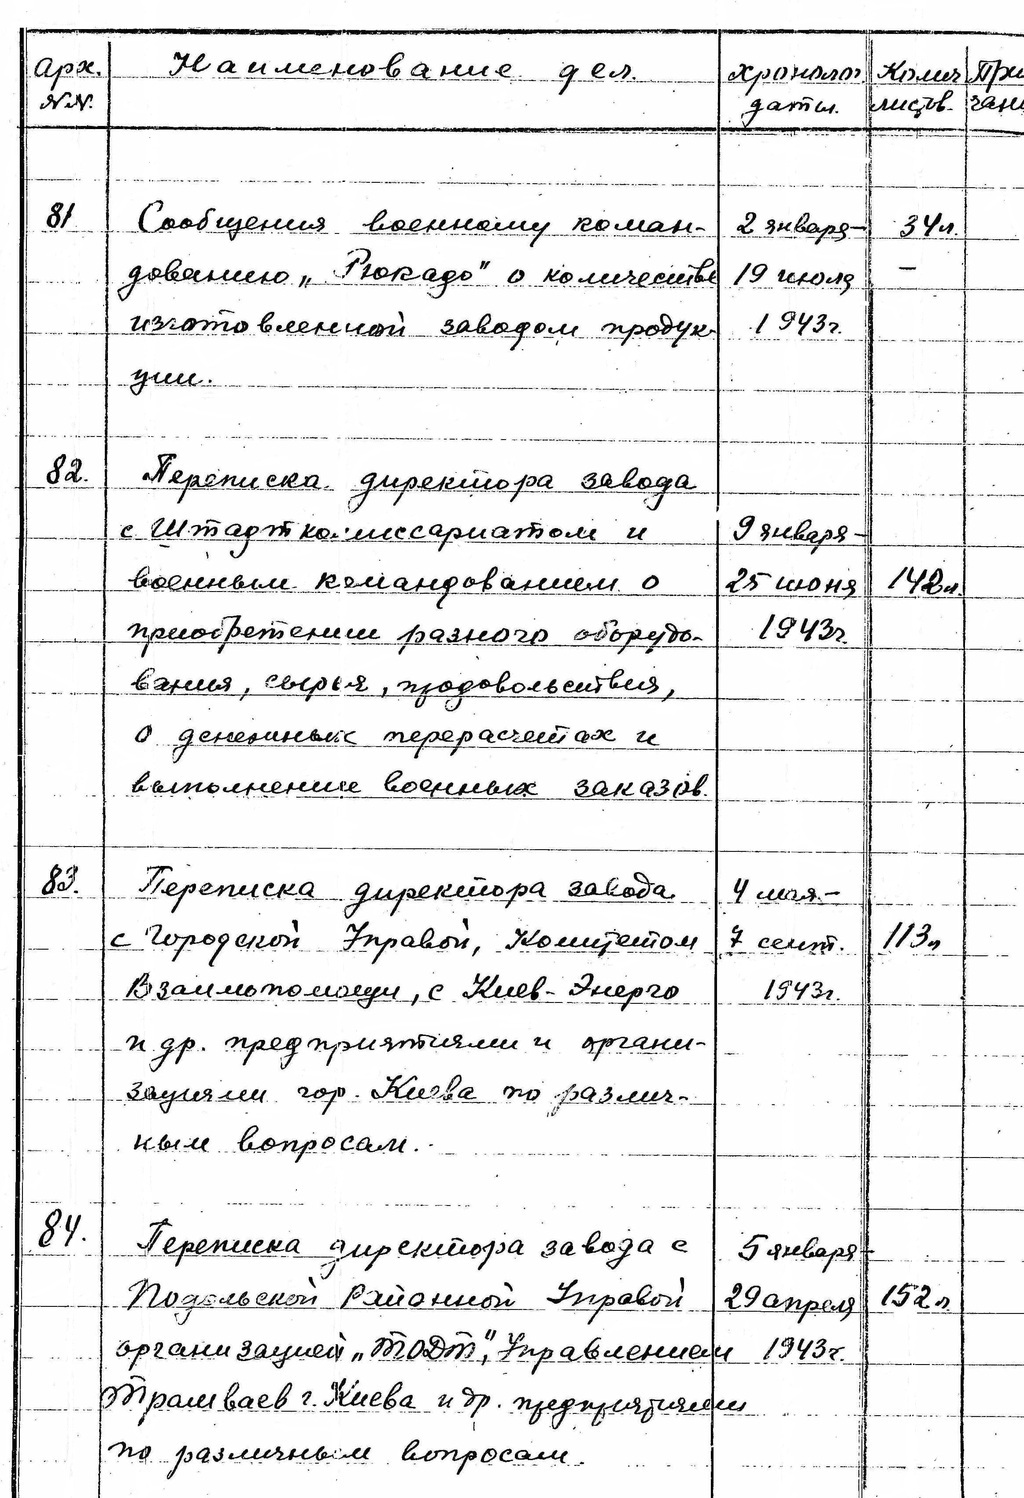 Арх. Наименование дел. хронолог Колич При
№№. даты. листов. чани
81 Сообщения военному коман- 2 января- 34л.
дованию „Рюкадо" о количестве 19 июля –
изготовленной заводом продук- 1943г.
ции.
82. Переписка директора завода
с Штадткомиссариатом и 9 января-
военным командованием о 25 июня 142л.
приобретении разного оборудо- 1943г.
вания, сырья, продовольствия,
о денежных перерасчетах и
выполнение военных заказов.
83. Переписка директора завода 4 мая-
с Городской Управой, Комитетом 7 сент. 113л
Взаимопомощи, с Киев-Энерго 1943г.
и др. предприятиями и органи-
зациями гор. Киева по различ-
ным вопросам.
84. Переписка директора завода с 5 января-
Подольской Районной Управой 29 апреля 152л
организацией „ТОДТ", Управлением 1943г.
Трамваев г. Киева и др. предприятиями
по различным вопросам.